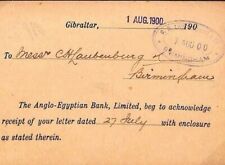 Gibraltar, 1 AUG. 1900 190
To Messrs C H Laubenburg &
Birmingham
The Anglo-Egyptian Bank, Limited, beg to acknowledge
receipt of your letter dated 27 July with enclosure
as stated therein.